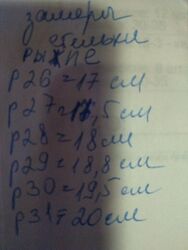 замеры
стельки
рыжие
р26=17 см
р27=17,5 см
р28=18 см
р29=18,8 см
р30=19,5 см
р31=20 см